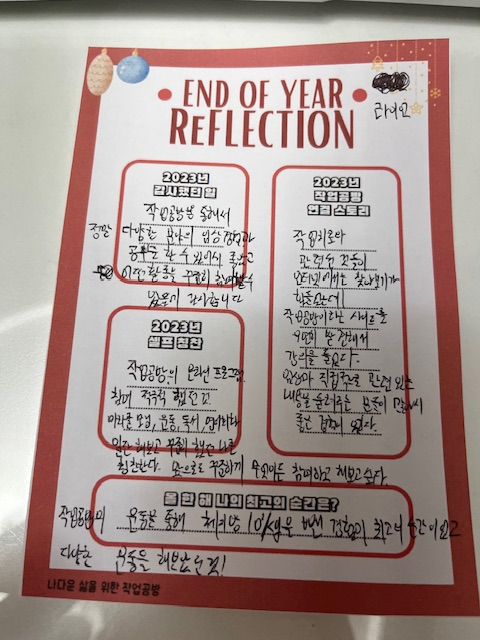 END OF YEAR
REFLECTION
라이언
2023년
감사했던 일
작업공방을 통해서
정말 다양한 분야의 임상경험과
공부를 할 수 있어서 좋았고
이런 활동을 꾸준히 참여할수
있음이 감사합니다
2023년
셀프 칭찬
작업공방의 온라인 프로그램
참여 적극적 했던 것
미라클 모닝, 운동, 독서 영어회화
일단 해보고 꾸준히 했던 나를
칭찬한다. 앞으로도 꾸준하게 무엇이든 참여하고 해보고 싶다.
2023년
작업공방
연결 스토리
작업치료와
관련된 것들이
인터넷에서는 찾아보기가
힘들었는데
작업공방이라는 사이트를
우연히 발견해서
강의를 들었다.
임상과 직접적으로 관련 있는
내용을 들려주는 분들이 많아서
좋은 경험이 였다.
올 한 해 나의 최고의 순간은?
작업공방의 운동을 통해 체지방 10%대를 만든 경험이 최고의 순간이였고
다양한 운동들 해보았던 것!
나다운 삶을 위한 작업공방